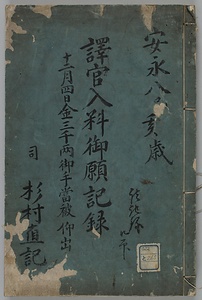 安永八己亥歳
譯官入料御願記録
十二月四日金三千両御手當被仰出
司
杉村直記